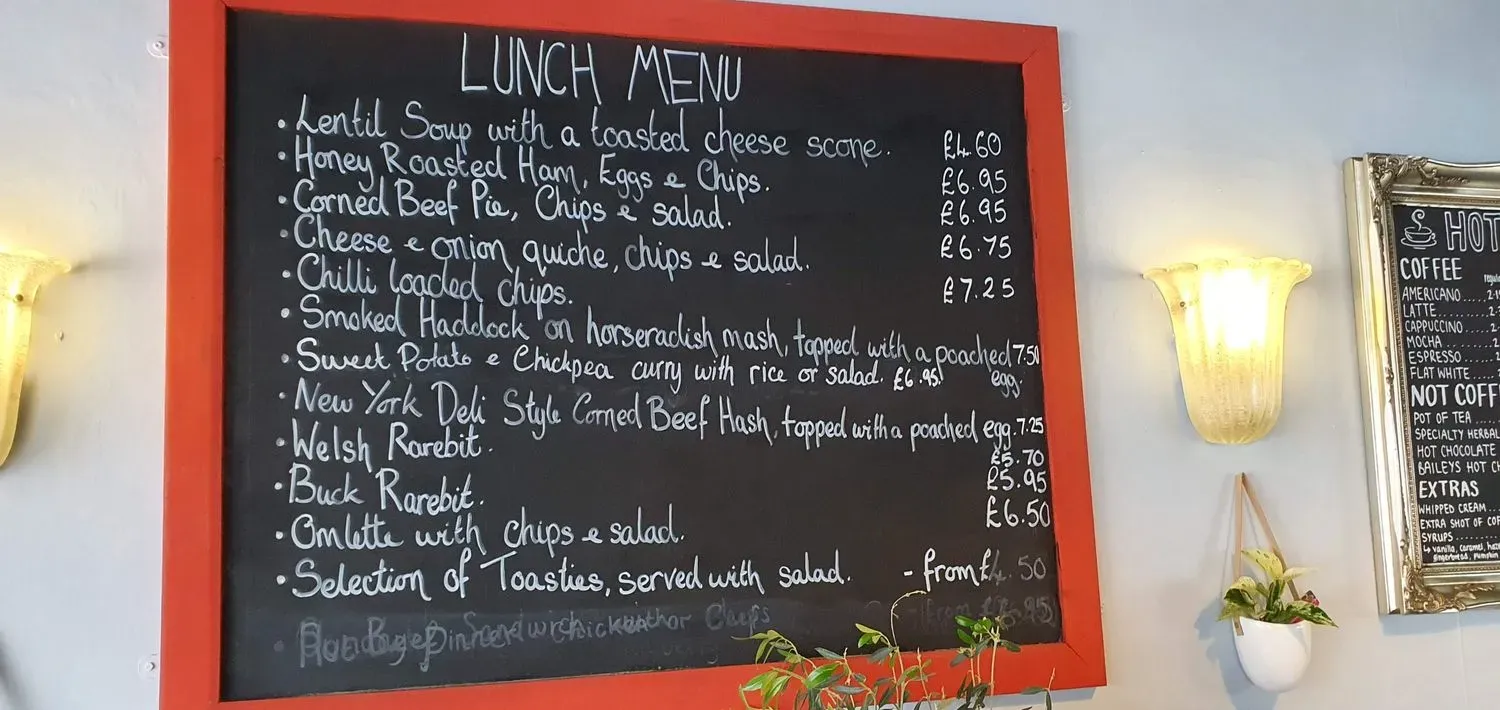 LUNCH MENU
• Lentil Soup with a toasted cheese scone. £4.60
• Honey Roasted Ham, Eggs e Chips. £6.95
• Corned Beef Pie, Chips e salad. £6.95
• Cheese e onion quiche, chips e salad. £6.75
• Chilli loaded chips. £7.25
• Smoked Haddock on horseradish mash, topped with a poached 7.50
egg.
• Sweet Potato e Chickpea curry with rice or salad. £6.95.
• New York Deli Style Corned Beef Hash, topped with a poached egg. 7.25
• Welsh Rarebit. £5.70
• Buck Rarebit. £5.95
• Omlette with chips e salad. £6.50
• Selection of Toasties, served with salad. - from £4.50
HOT
COFFEE
AMERICANO
LATTE
CAPPUCCINO
MOCHA
ESPRESSO
FLAT WHITE
NOT COFF
POT OF TEA
SPECIALTY HERBAL
HOT CHOCOLATE
BAILEYS HOT CH
EXTRAS
WHIPPED CREAM
EXTRA SHOT OF COF
SYRUPS
vanilla, caramel, haze
gingerbread, pumpkin